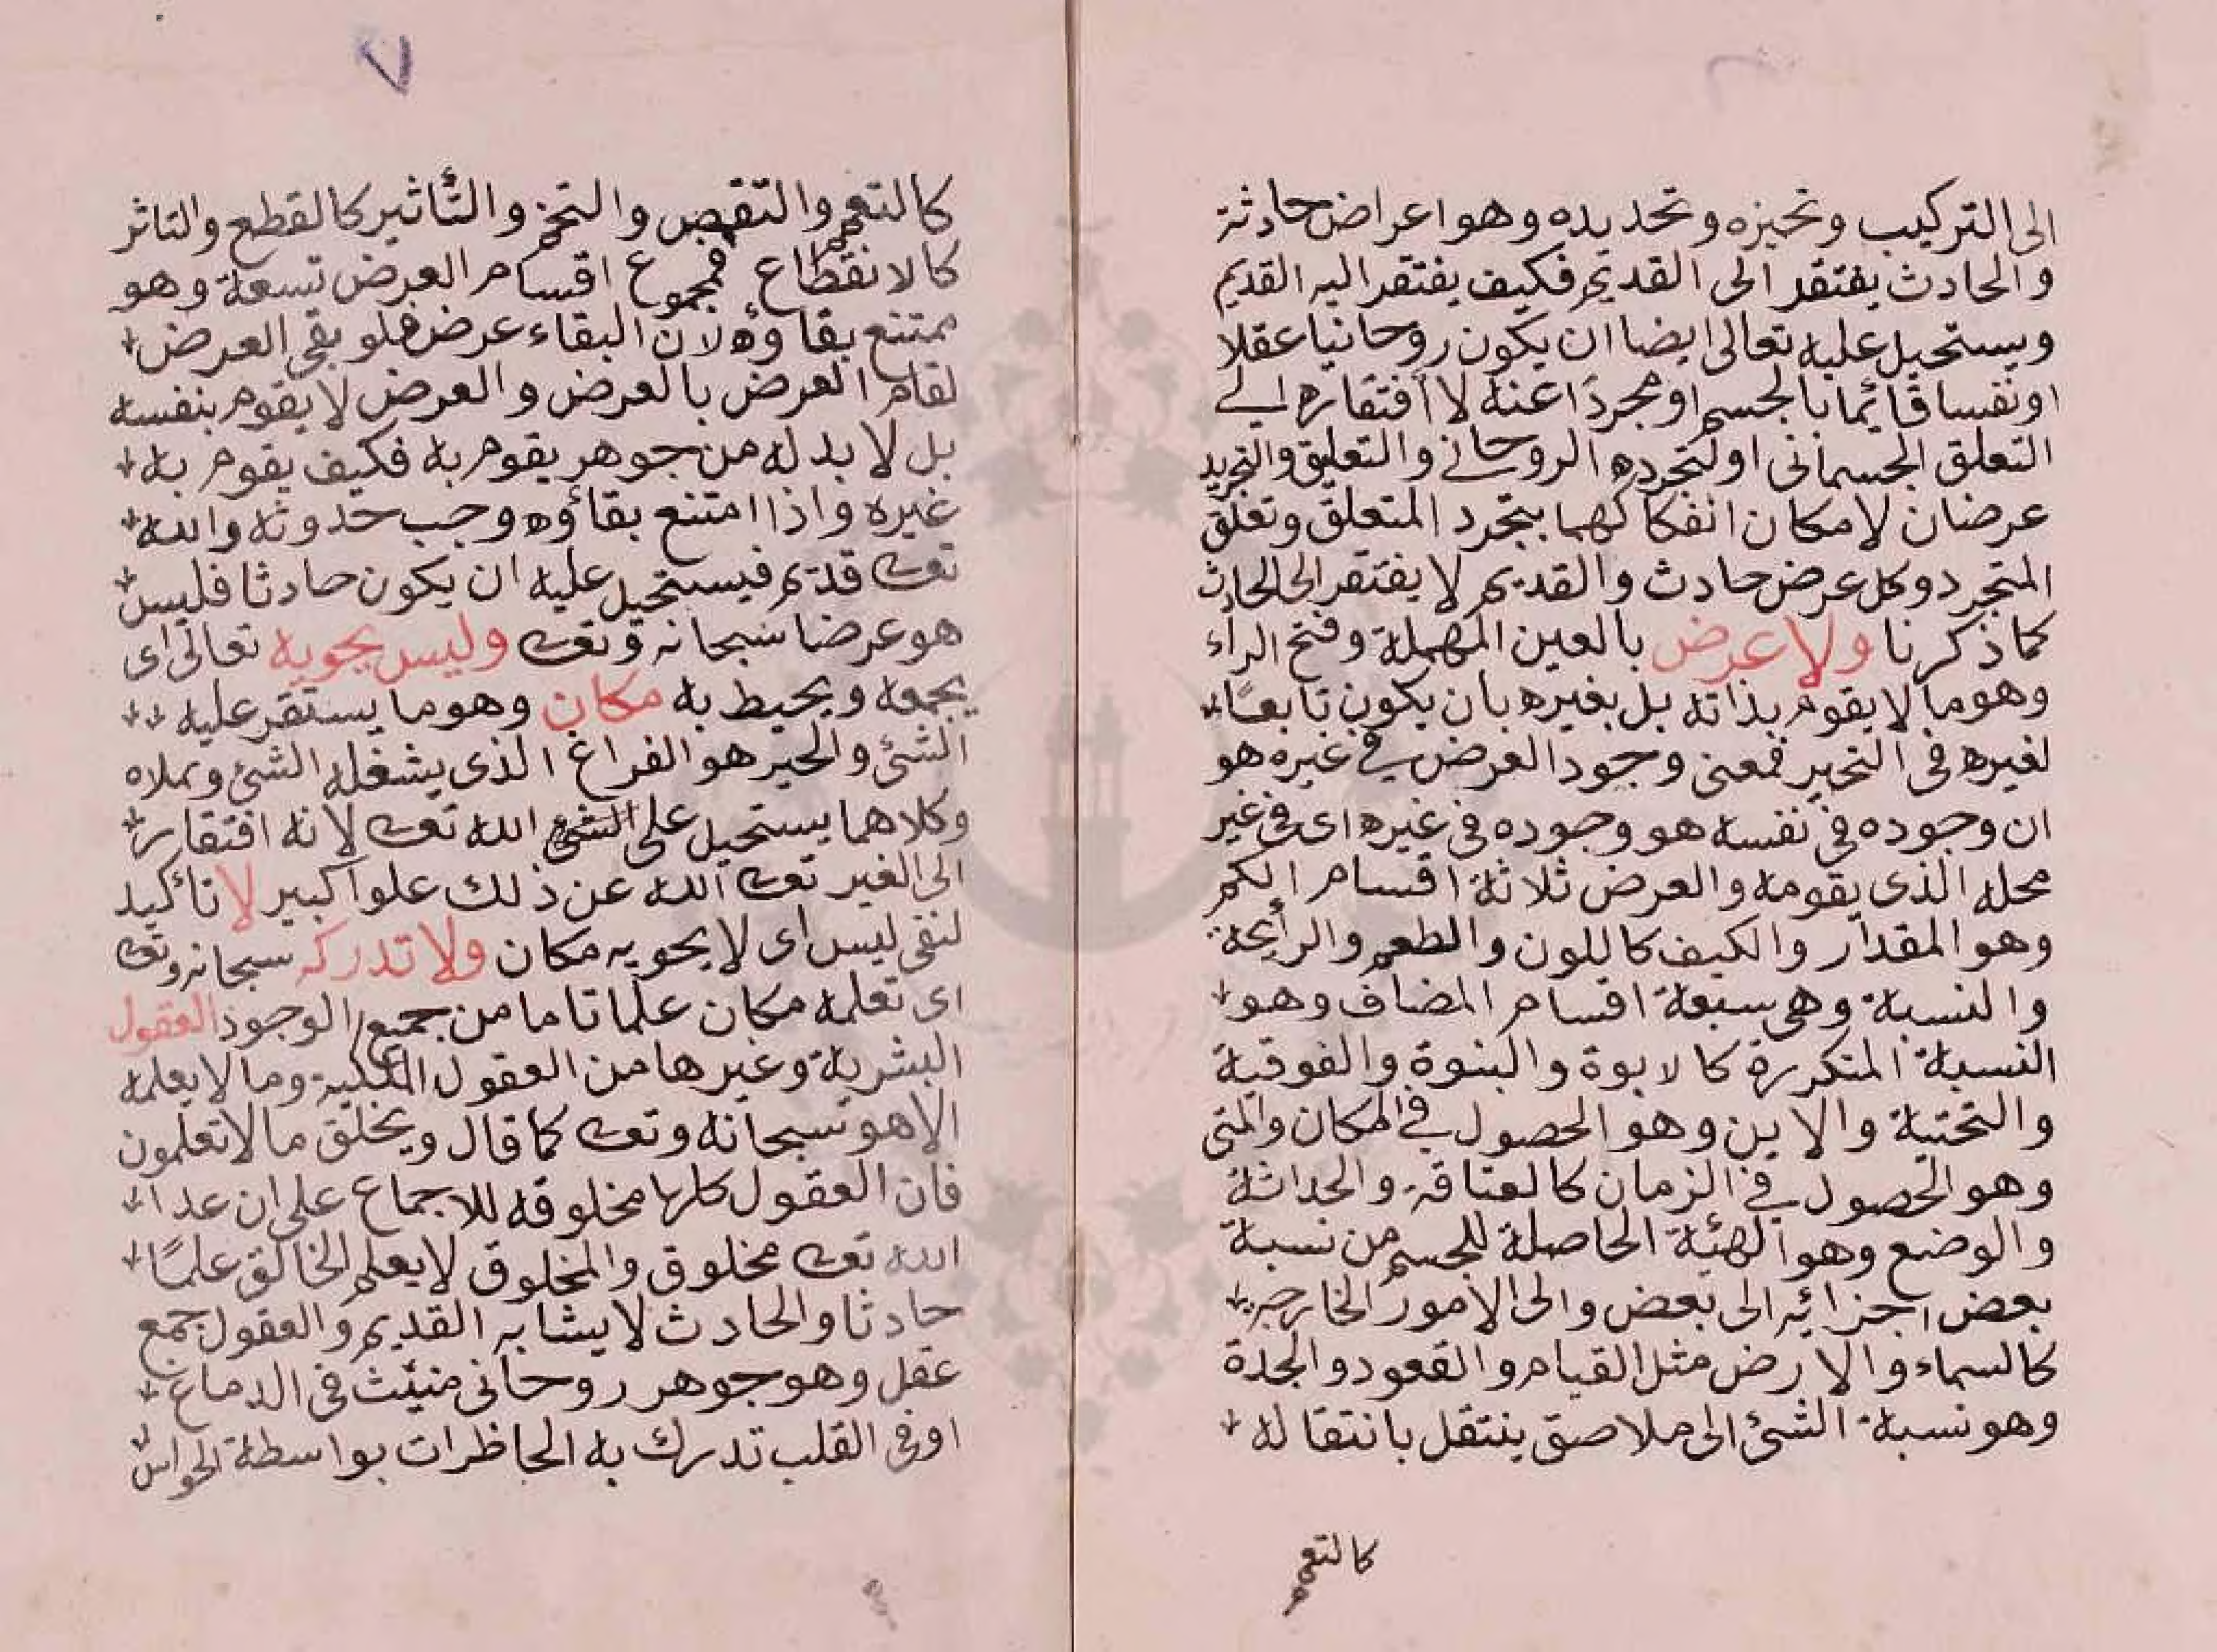 الى التركيب وتحيزه وتحديده وهو اعراض حادثة
والحادث يفتقر الى القديم فكيف يفتقر اليه القديم
ويستحيل عليه تعالى ايضا ان يكون روحانيا عقلا
او نفسا قائما بالجسم او مجردا عنه لا افتقاره الى
التعلق الجسمانى او لتجرده الروحانى والتعليق والتجريد
عرضان لامكان انفكاكهما بتجرد المتعلق وتعلق
المتجرد وكل عرض حادث والقديم لا يفتقر الى الحادث
كما ذكرنا ولا عرض بالعين المهملة وفتح الراء
وهو ما لا يقوم بذاته بل بغيره بان يكون تابعًا
لغيره فى التحيز فمعنى وجود العرض فى غيره هو
ان وجوده فى نفسه هو وجوده فى غيره اى فى غير
محله الذى يقومه والعرض ثلاثة اقسام الكم
وهو المقدار والكيف كاللون والطعم والرايحة
والنسبة وهى سبعة اقسام المضاف وهو
النسبة المتكررة كالابوة والبنوة والفوقية
والتحتية والاين وهو الحصول فى المكان والمتى
وهو الحصول فى الزمان كالعتاقة والحداثة
والوضع وهو الهئة الحاصلة للجسم من نسبة
بعض اجزائه الى بعض والى الامور الخارجية
كالسماء والارض مثل القيام والقعود والجدة
وهو نسبة الشئ الى ملاصق ينتقل بانتقاله
كالتعمم
٧
كالتعمم والتقمص والتختم والتأثير كالقطع والتاثر
كالانقطاع فمجموع اقسام العرض تسعة وهو
ممتنع بقاؤه لان البقاء عرض فلو بقى العرض
لقام العرض بالعرض والعرض لا يقوم بنفسه
بل لا بد له من جوهر يقوم به فكيف يقوم به
غيره واذا امتنع بقاؤه وجب حدوثه والله
تعالى قديم فيستحيل عليه ان يكون حادثا فليس
هو عرضا سبحانه وتعالى وليس يحويه تعالى اى
يجمعه ويحيط به مكان وهو ما يستقر عليه
الشئ والحيز هو الفراغ الذى يشغله الشئ ويملاه
وكلاهما يستحيل على الشئ الله تعالى لانه افتقار
الى الغير تعالى الله عن ذلك علوا كبير لا تأكيد
لنفى ليس اى لا يحويه مكان ولا تدركه سبحانه وتعالى
اى تعلمه مكان علما تاما من جميع الوجود العقول
البشرية وغيرها من العقول الملكية وما لا يعلمه
الا هو سبحانه وتعالى كما قال ويخلق ما لا تعلمون
فان العقول كلها مخلوقه للاجماع على ان عدا
الله تعالى مخلوق والمخلوق لا يعلم الخالق علمًا
حادثا والحادث لا يشابه القديم والعقول جمع
عقل وهو جوهر روحانى منبث فى الدماغ
او فى القلب تدرك به الحاظرات بواسطة الحواس